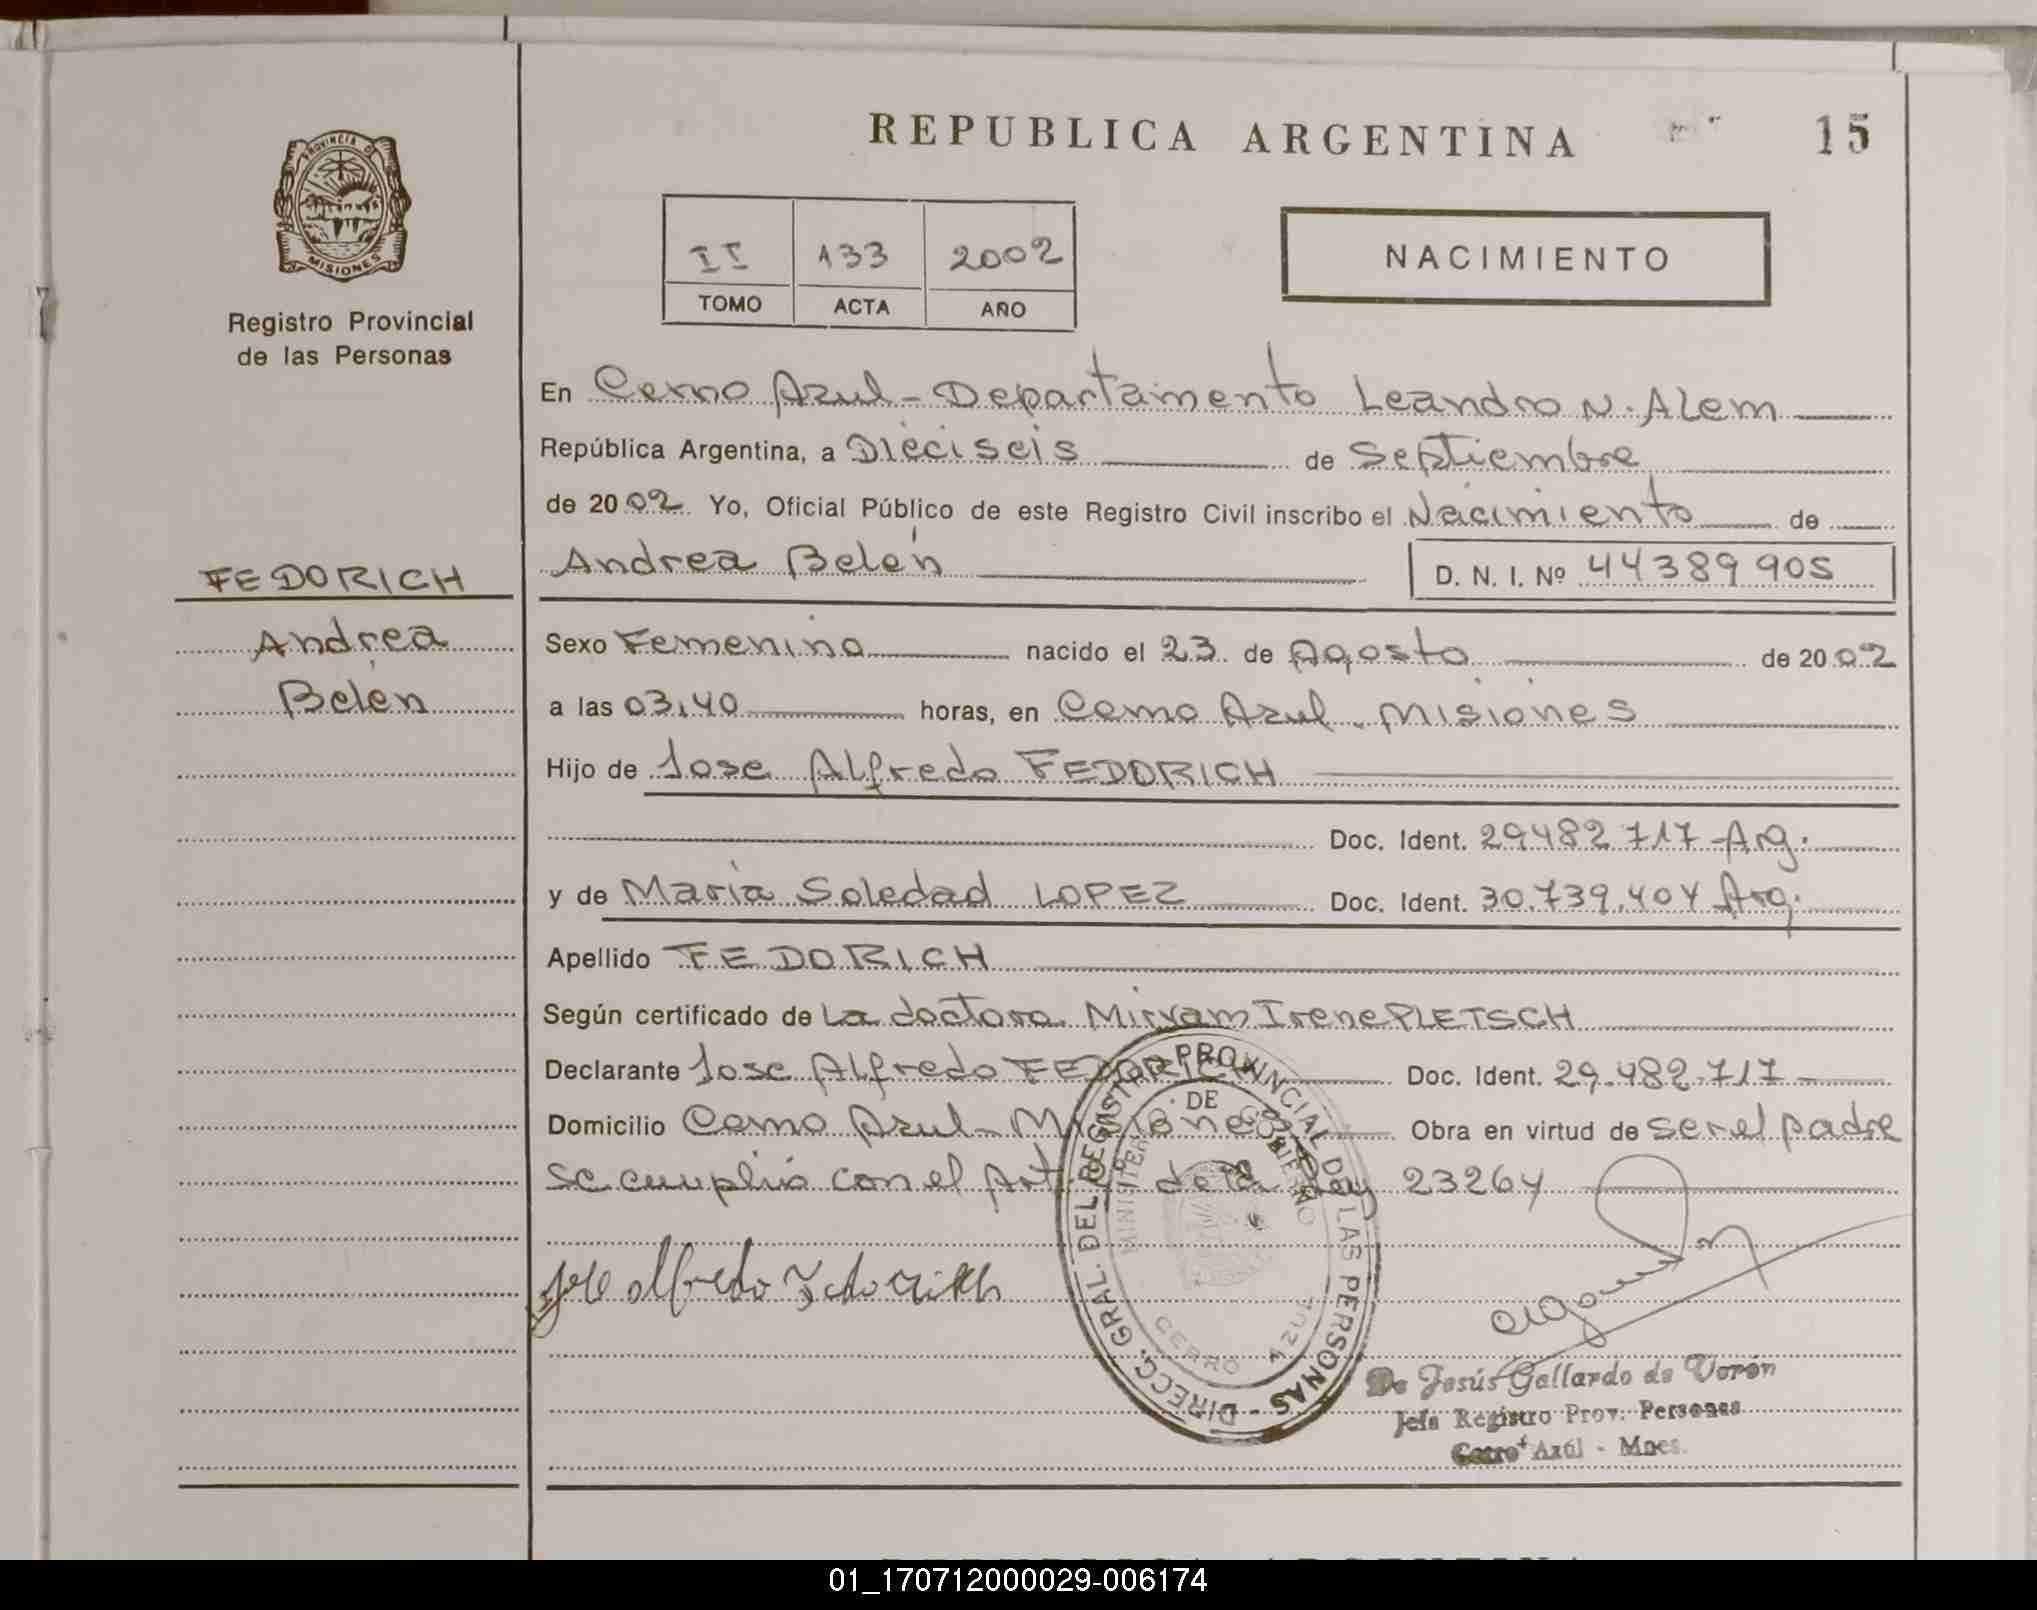 REPUBLICA ARGENTINA
15
PROVINCIA D
MISIONES
Registro Provincial
de las Personas
II 133 2002
TOMO ACTA AÑO
NACIMIENTO
En Cerro Azul - Departamento Leandro N. Alem
República Argentina, a Dieciseis de Septiembre
de 2002 Yo, Oficial Público de este Registro Civil inscribo el Nacimiento de
Andrea Belén D. N. I. Nº 44389905
FEDORICH
Andrea
Belén
Sexo Femenino nacido el 23 de Agosto de 2002
a las 03,40 horas, en Cerro Azul - Misiones
Hijo de Jose Alfredo FEDORICH
Doc. Ident. 29482717 Arg.
y de Maria Soledad LOPEZ Doc. Ident. 30.739.404 Arg.
Apellido FEDORICH
Según certificado de La doctora Miryam Irene PLETSCH
Declarante Jose Alfredo FEDORICH Doc. Ident. 29.482.717
Domicilio Cerro Azul - Misiones Obra en virtud de ser el padre
Se cumplió con el Art. de la Ley 23264
Jose Alfredo Fedorich
DIRECC. GRAL. DEL REGISTRO PROVINCIAL DE LAS PERSONAS
MINISTERIO DE GOBIERNO
CERRO AZUL
De Jesús Gallardo de Vorón
Jefa Registro Prov. Personas
Cerro Azúl - Mnes.
REPUBLICA ARGENTINA
01_170712000029-006174